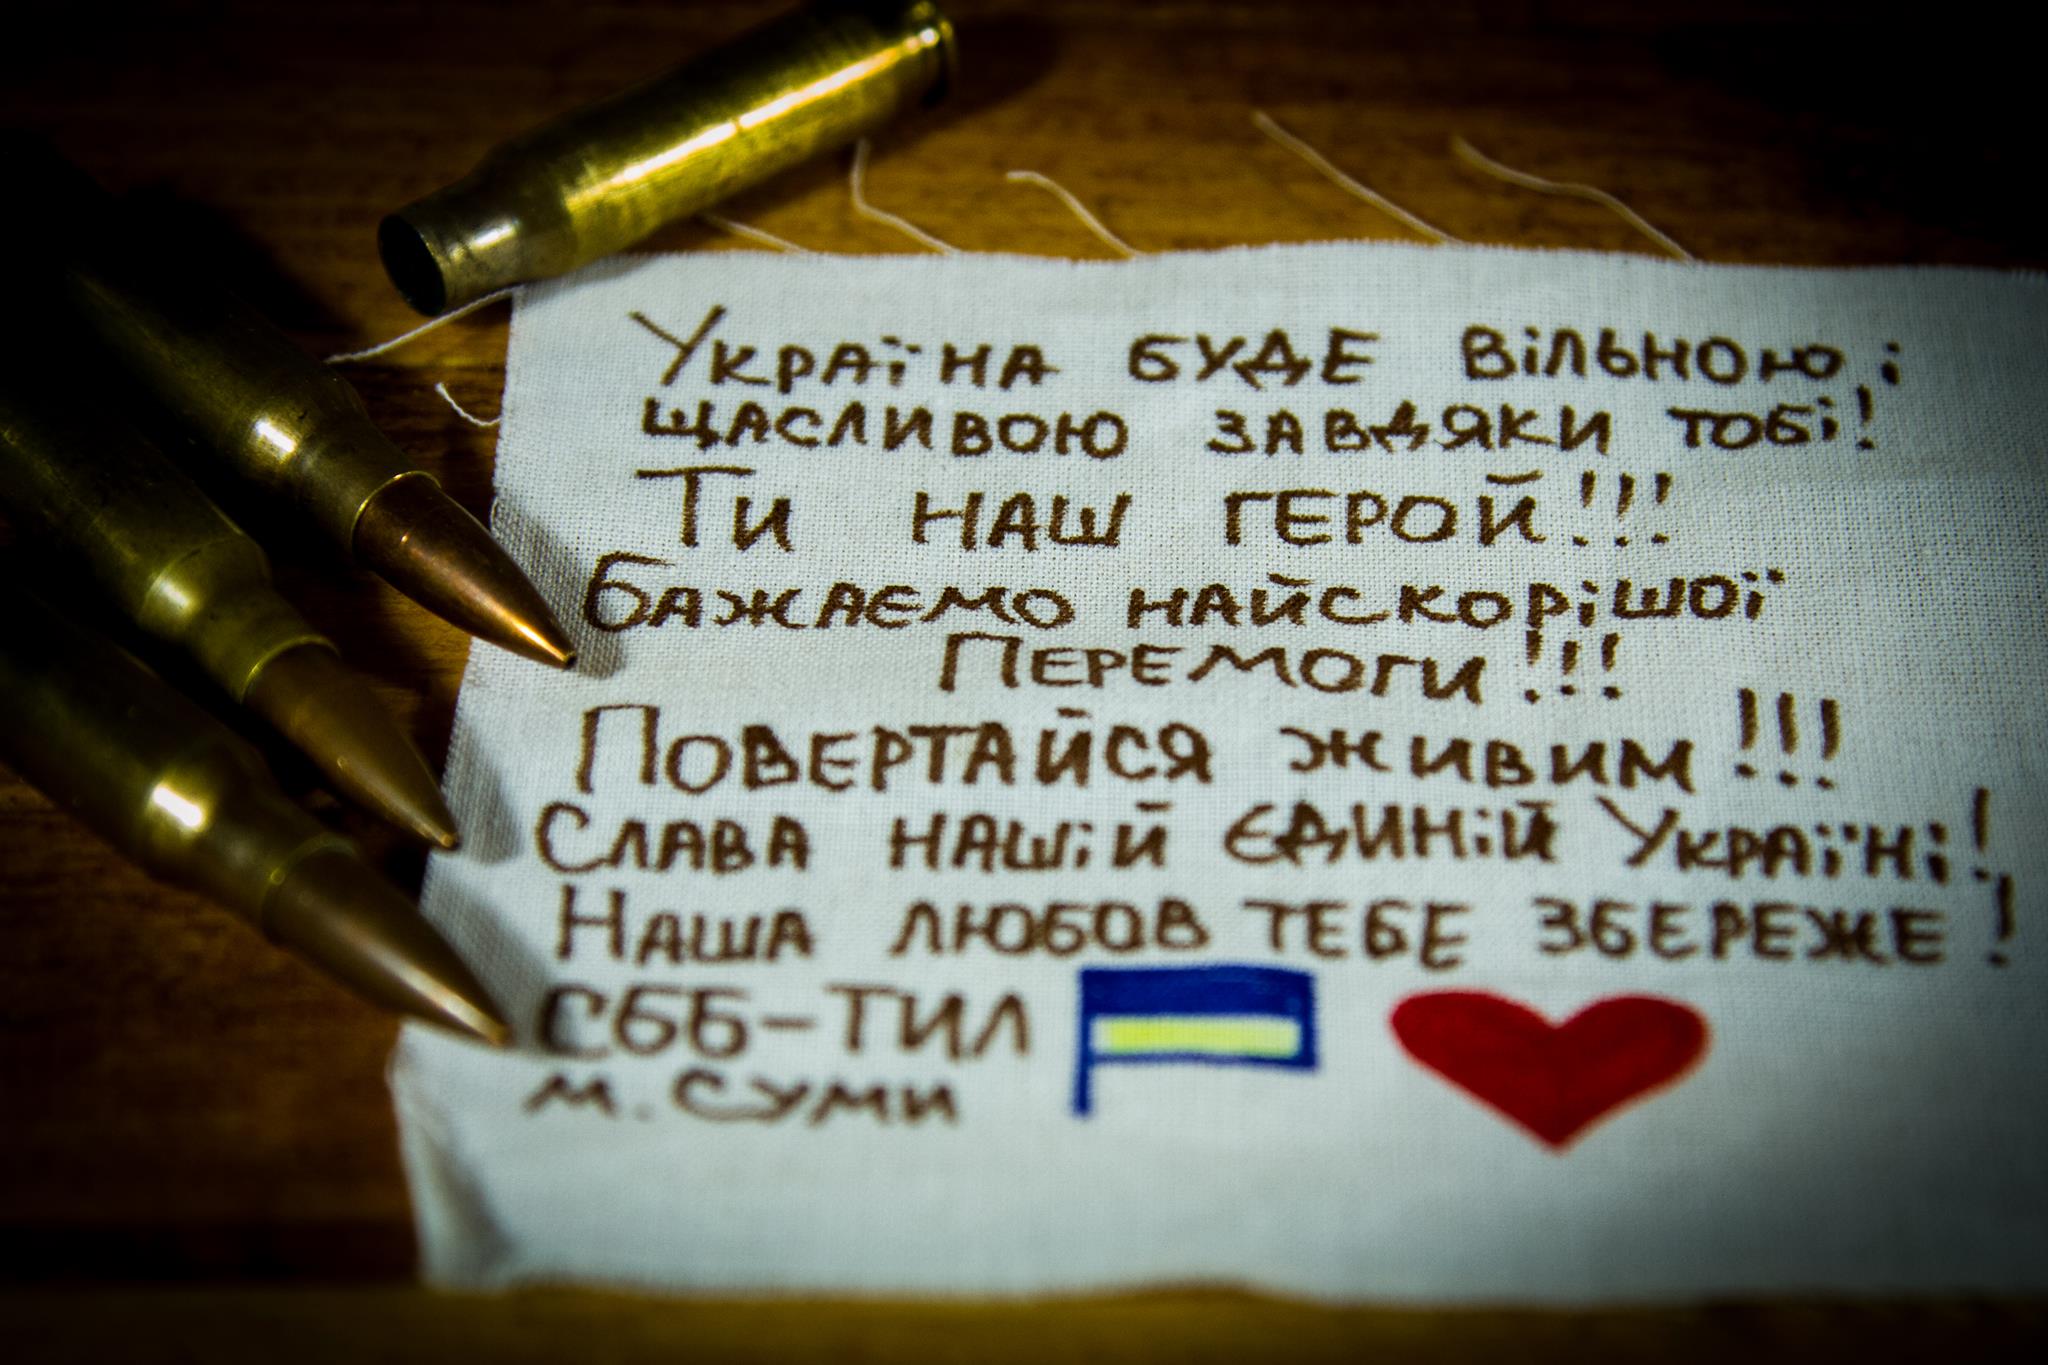 Україна буде вільною, і
щасливою завдяки тобі!
Ти наш герой!!!
Бажаємо найскорішої
Перемоги!!!
Повертайся живим!!!
Слава нашій єдиній Україні!
Наша любов тебе збереже!
СББ-ТИЛ
м. Суми